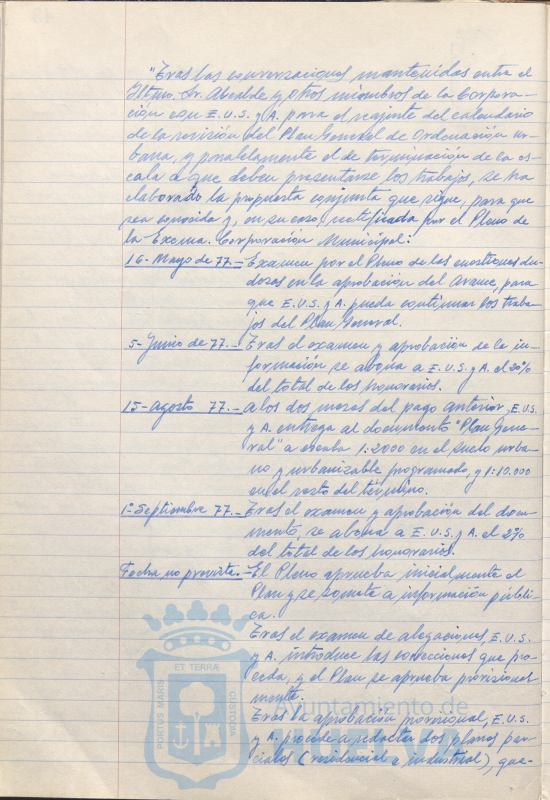 "Tras las conversaciones mantenidas entre el
Iltmo. Sr. Alcalde y otros miembros de la Corpora-
ción con E.U.S. y A. para el reajuste del calendario
de la revisión del Plan General de Ordenación ur-
bana, y paralelamente el de terminación de la es-
cala a que deben presentarse los trabajos, se ha
elaborado la propuesta conjunta que sigue, para que
sea conocida y, en su caso, ratificada por el Pleno de
la Excma. Corporación Municipal:
16- Mayo de 77.- Examen por el Pleno de las cuestiones du-
dosas en la aprobación del Avance, para
que E.U.S. y A. pueda continuar los traba-
jos del Plan General.
5- Junio de 77.- Tras el examen y aprobación de la in-
formación se abona a E.U.S. y A. el 20%
del total de los honorarios.
15- agosto 77.- a los dos meses del pago anterior, E.U.S.
y A. entrega al documento "Plan Gene-
ral" a escala 1:2000 en el suelo urba-
no y urbanizable programado, y 1:10.000
en el resto del término.
1º- Septiembre 77.- Tras el examen y aprobación del docu-
mento, se abona a E.U.S. y A. el
del total de los honorarios.
Fecha no prevista.- El Pleno aprueba inicialmente el
Plan y se somete a información públi-
ca.
Tras el examen de alegaciones, E.U.S.
y A. introduce las correcciones que pro-
ceda, y el Plan se aprueba provisional
mente.
Tras la aprobación provisional, E.U.S.
y A. procede a redactar dos planes par-
ciales (residencial e industrial), que-
PORTUS MARIS ET TERRAE CUSTODIA
Ayuntamiento de
HUELVA